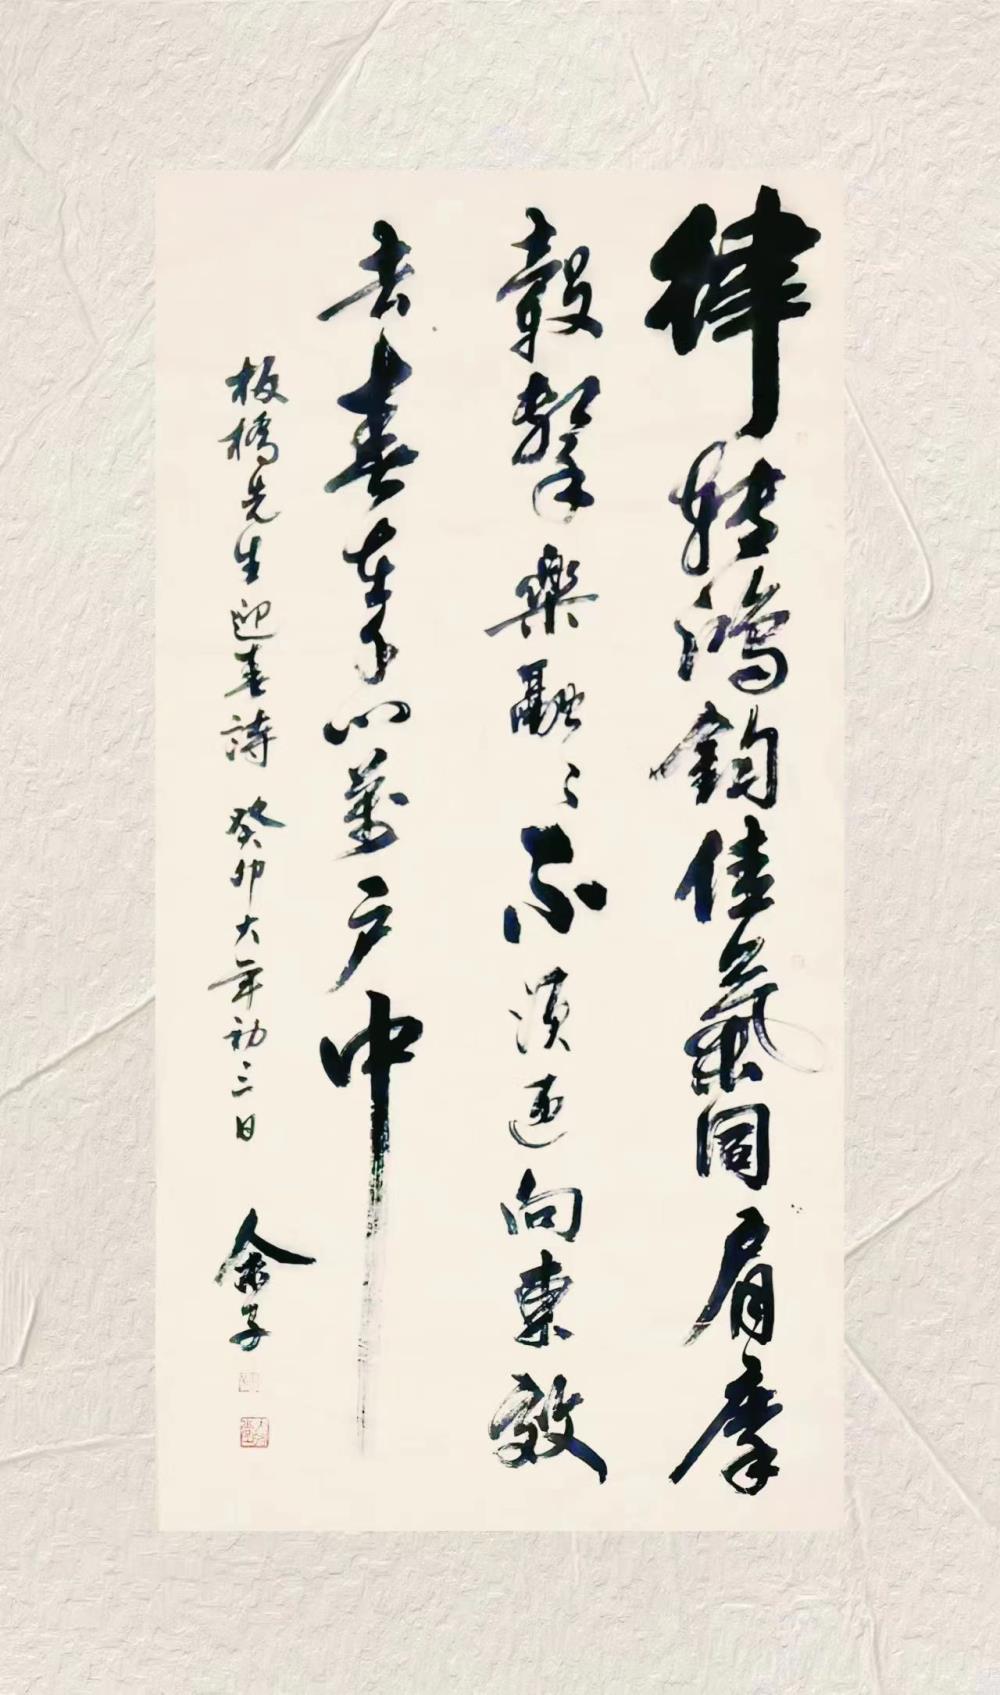 律轉鴻鈞佳氣同肩摩
轂擊樂融〻不湏迎向東效
去春在千门萬户中
板橋先生迎春詩 癸卯大年初三日 余子